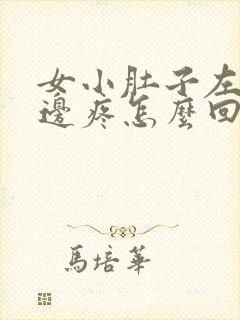 女小肚子左
邊疼怎麼回
馬培華